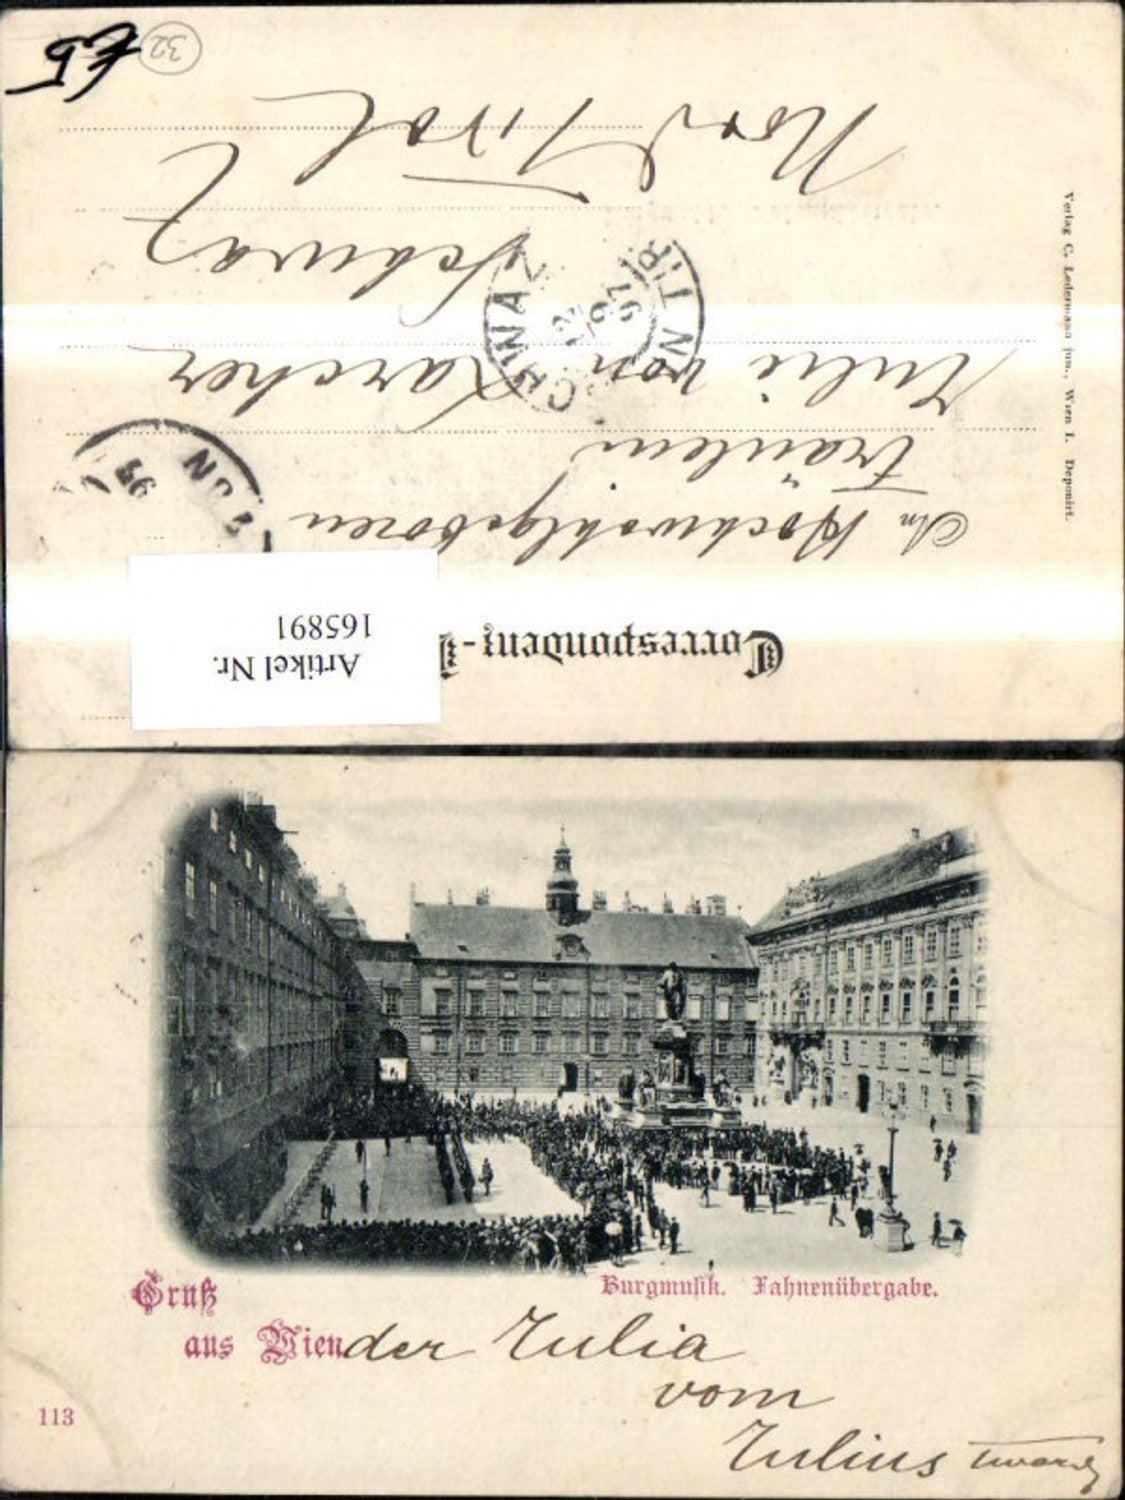 Correspondenz-
Artikel Nr.
165891
An Hochwohlgeboren
Fräulein
Julie von Karcher
Schwaz
Nord Tirol
SCHWAZ
TIR
Verlag C. Ledermann jun., Wien I. Deponirt.
32
Gruß
aus Wien
Burgmusik. Fahnenübergabe.
der Julia
vom
Julius
113